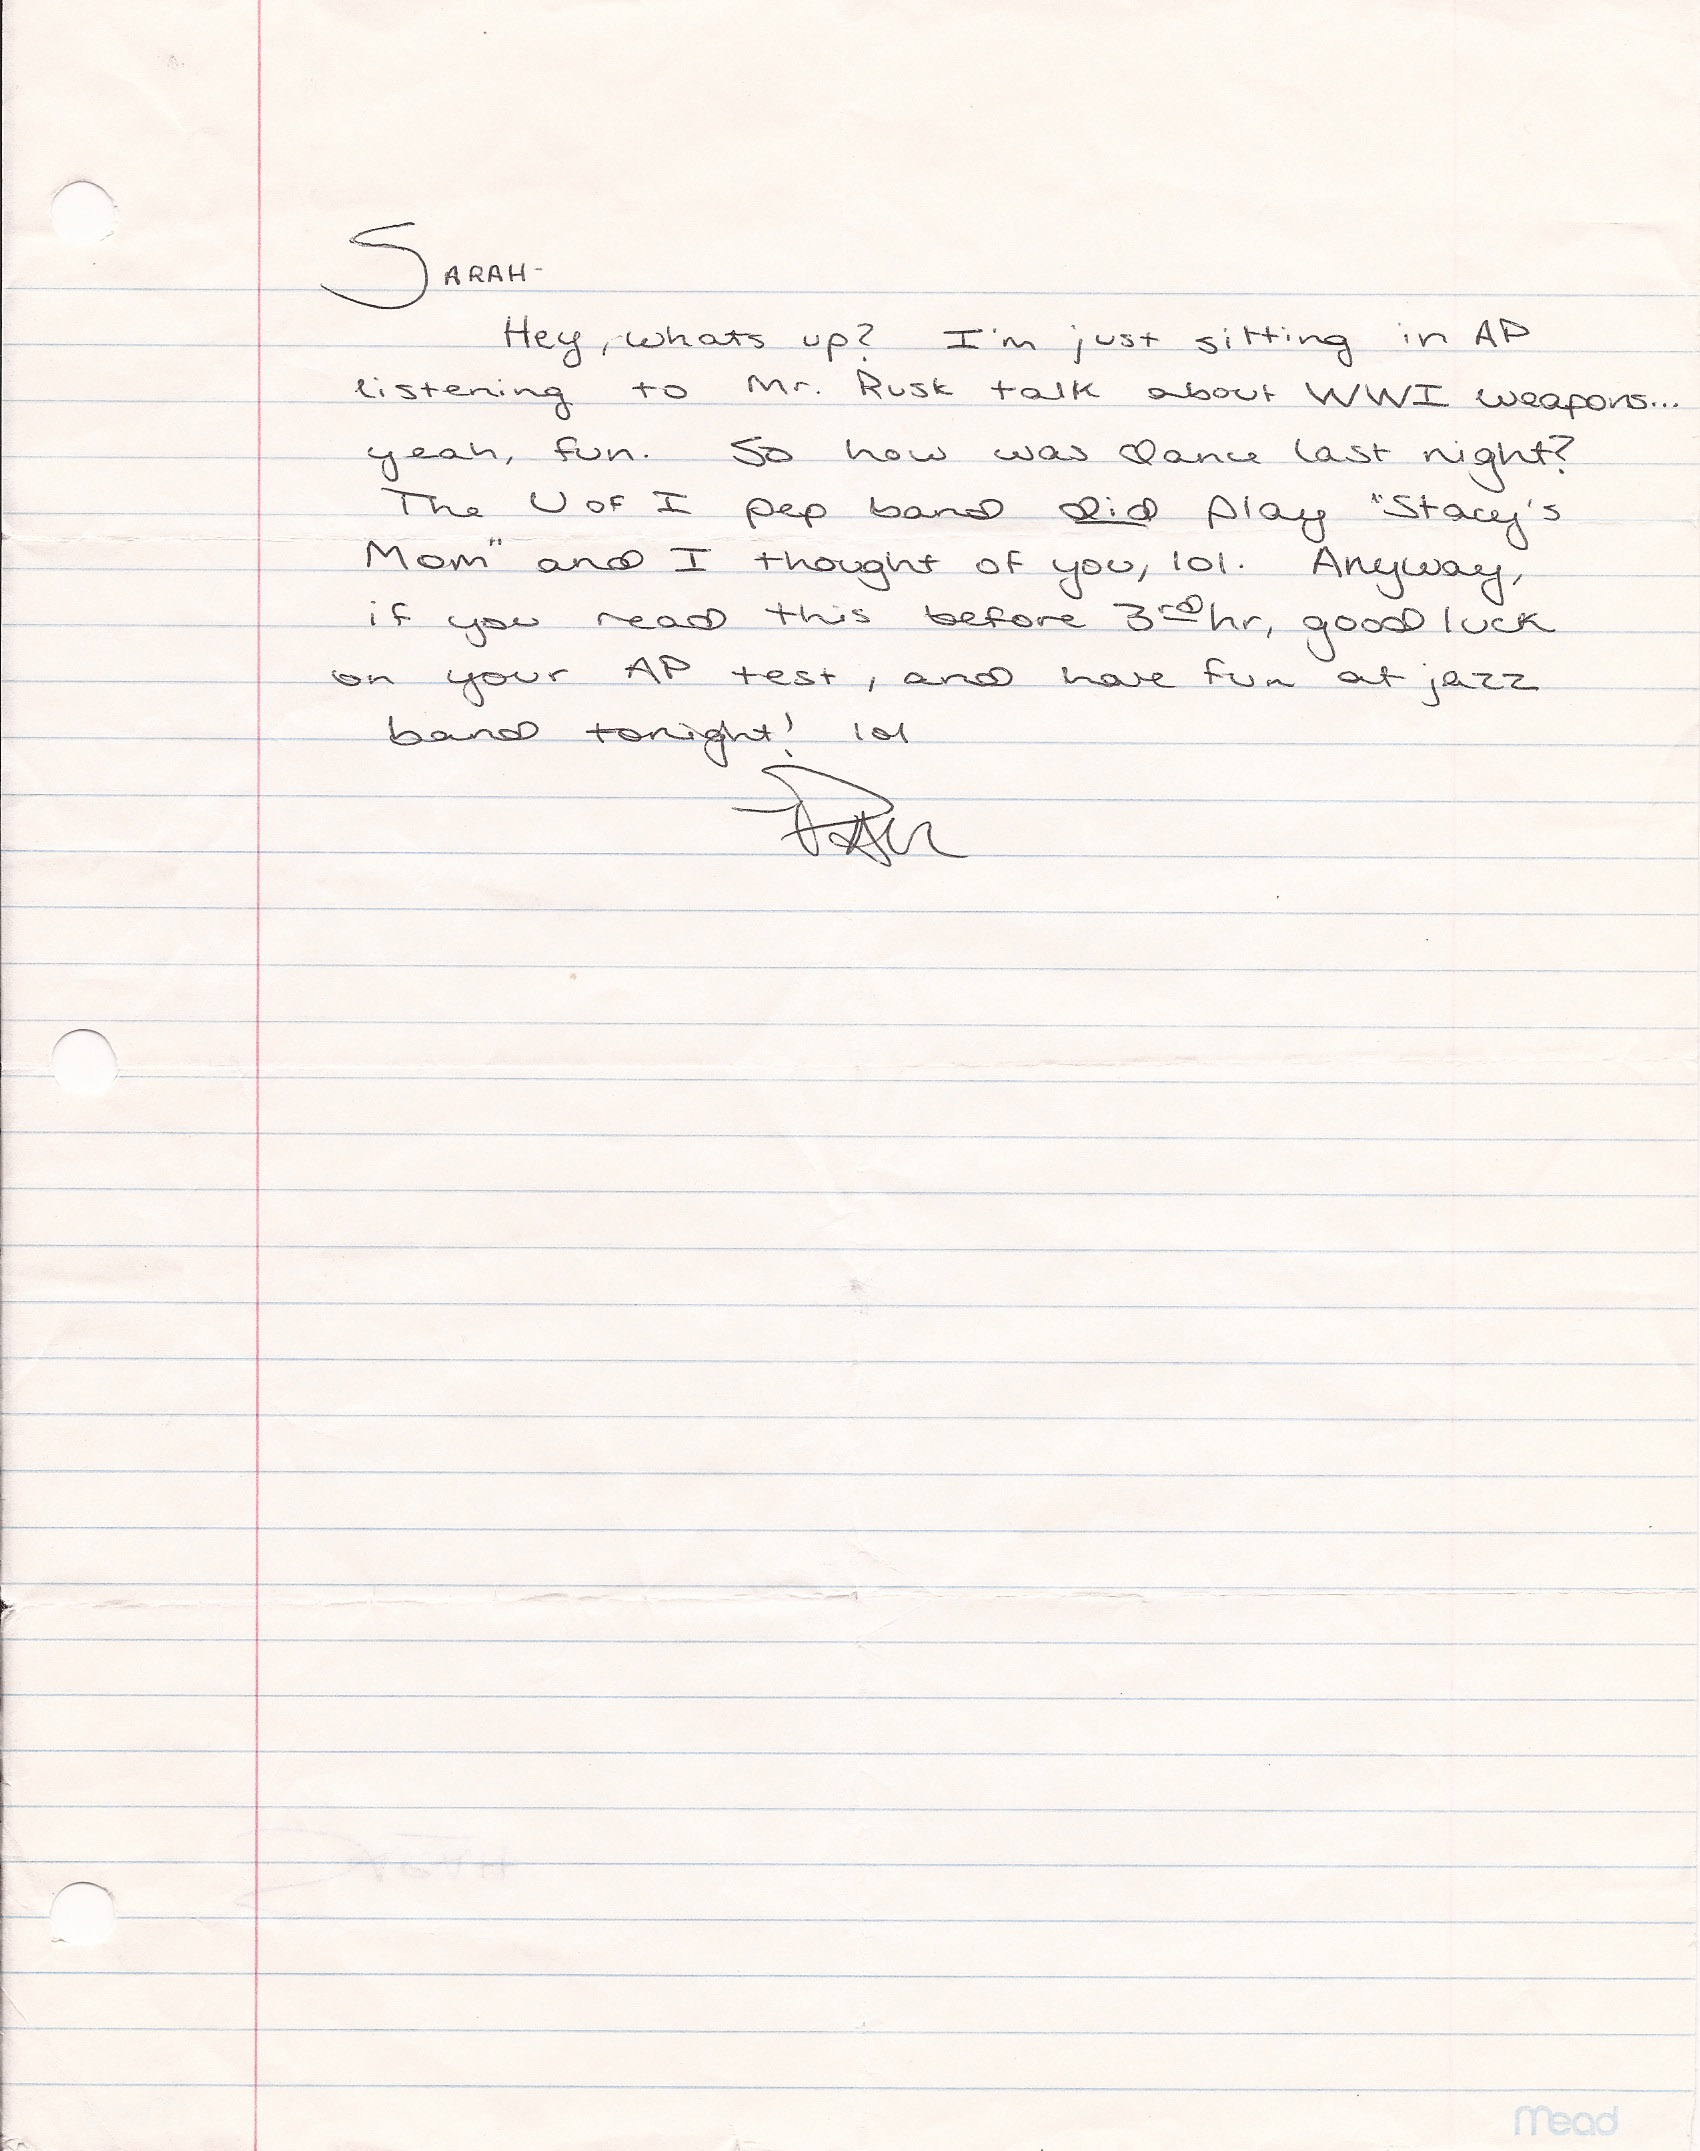 SARAH-
Hey, whats up? I'm just sitting in AP
listening to Mr. Rusk talk about WWI weapons...
yeah, fun. So how was dance last night?
The U of I pep band did play "Stacy's
Mom" and I thought of you, lol. Anyway,
if you read this before 3rd hr, good luck
on your AP test, and have fun at jazz
band tonight! lol
Mead